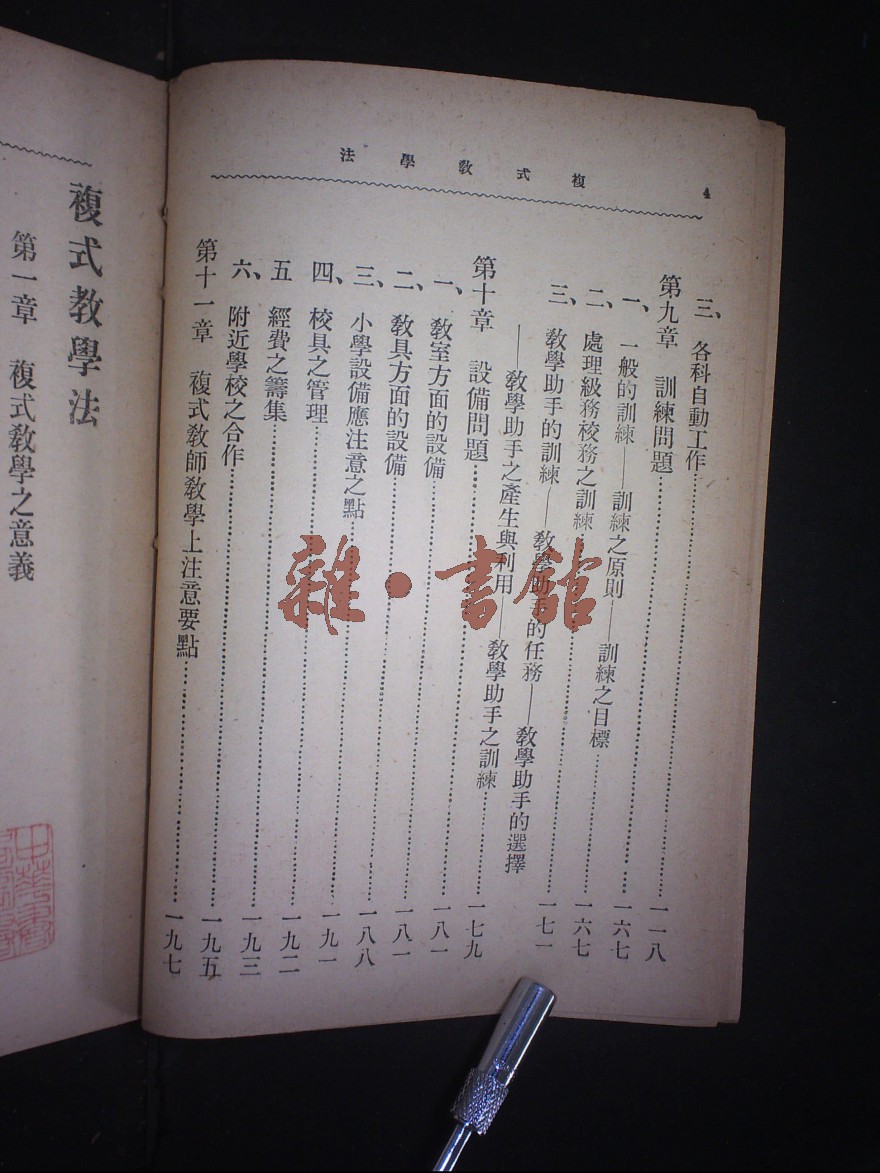 4
複式教學法
三、各科自動工作……一一八
第九章　訓練問題……一六七
一、一般的訓練——訓練之原則——訓練之目標……一六七
二、處理級務校務之訓練……一七一
三、教學助手的訓練——教學助手的任務——教學助手的選擇
——教學助手之產生與利用——教學助手之訓練……一七九
第十章　設備問題……一八一
一、教室方面的設備……一八一
二、教具方面的設備……一八八
三、小學設備應注意之點……一九一
四、校具之管理……一九二
五　經費之籌集……一九三
六、附近學校之合作……一九五
第十一章　複式教師教學上注意要點……一九七
複式教學法
第一章　複式教學之意義
雜·書館